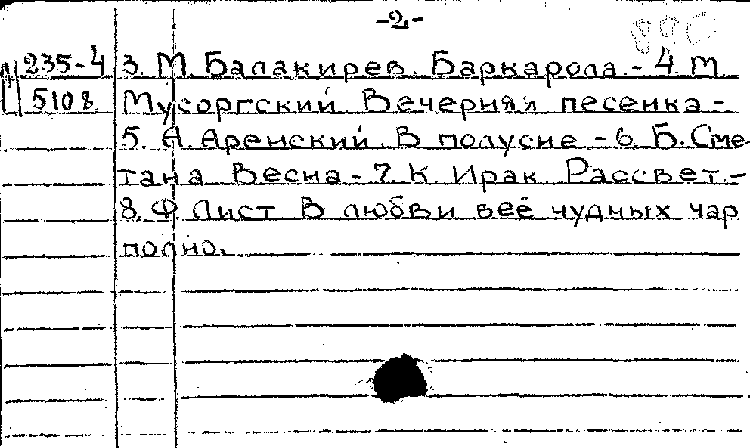 -2-
235-4 3. М. Балакирев. Баркарола. - 4. М.
5108 Мусоргский. Вечерняя песенка -
5. А. Аренский. В полусне - 6. Б. Сме-
тана Весна - 7. К. Ирак Рассвет. -
8. Ф. Лист В любви всё чудных чар
полно.